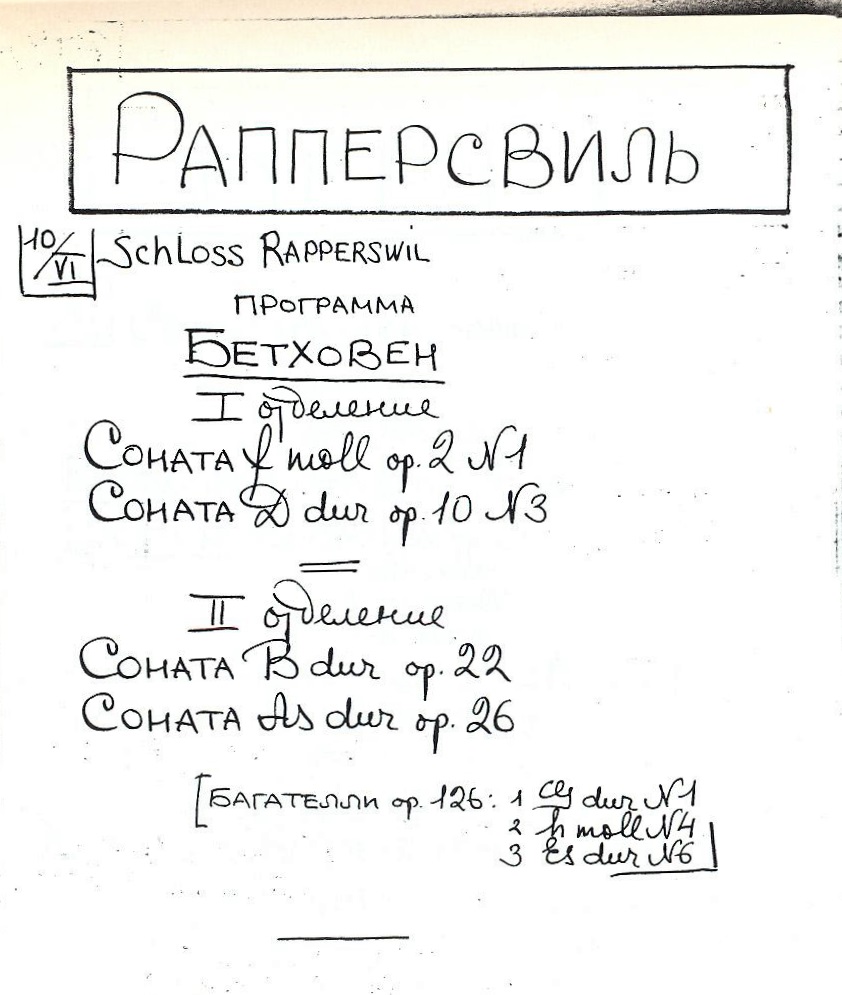 РАППЕРСВИЛЬ
10/VI Schloss RAPPERSWIL
ПРОГРАММА
БЕТХОВЕН
I отделение
СОНАТА f moll op. 2 N1
СОНАТА D dur op. 10 N3
II отделение
СОНАТА B dur op. 22
СОНАТА As dur op. 26
[БАГАТЕЛЛИ op. 126: 1 G dur N1
2 h moll N4
3 Es dur N6]